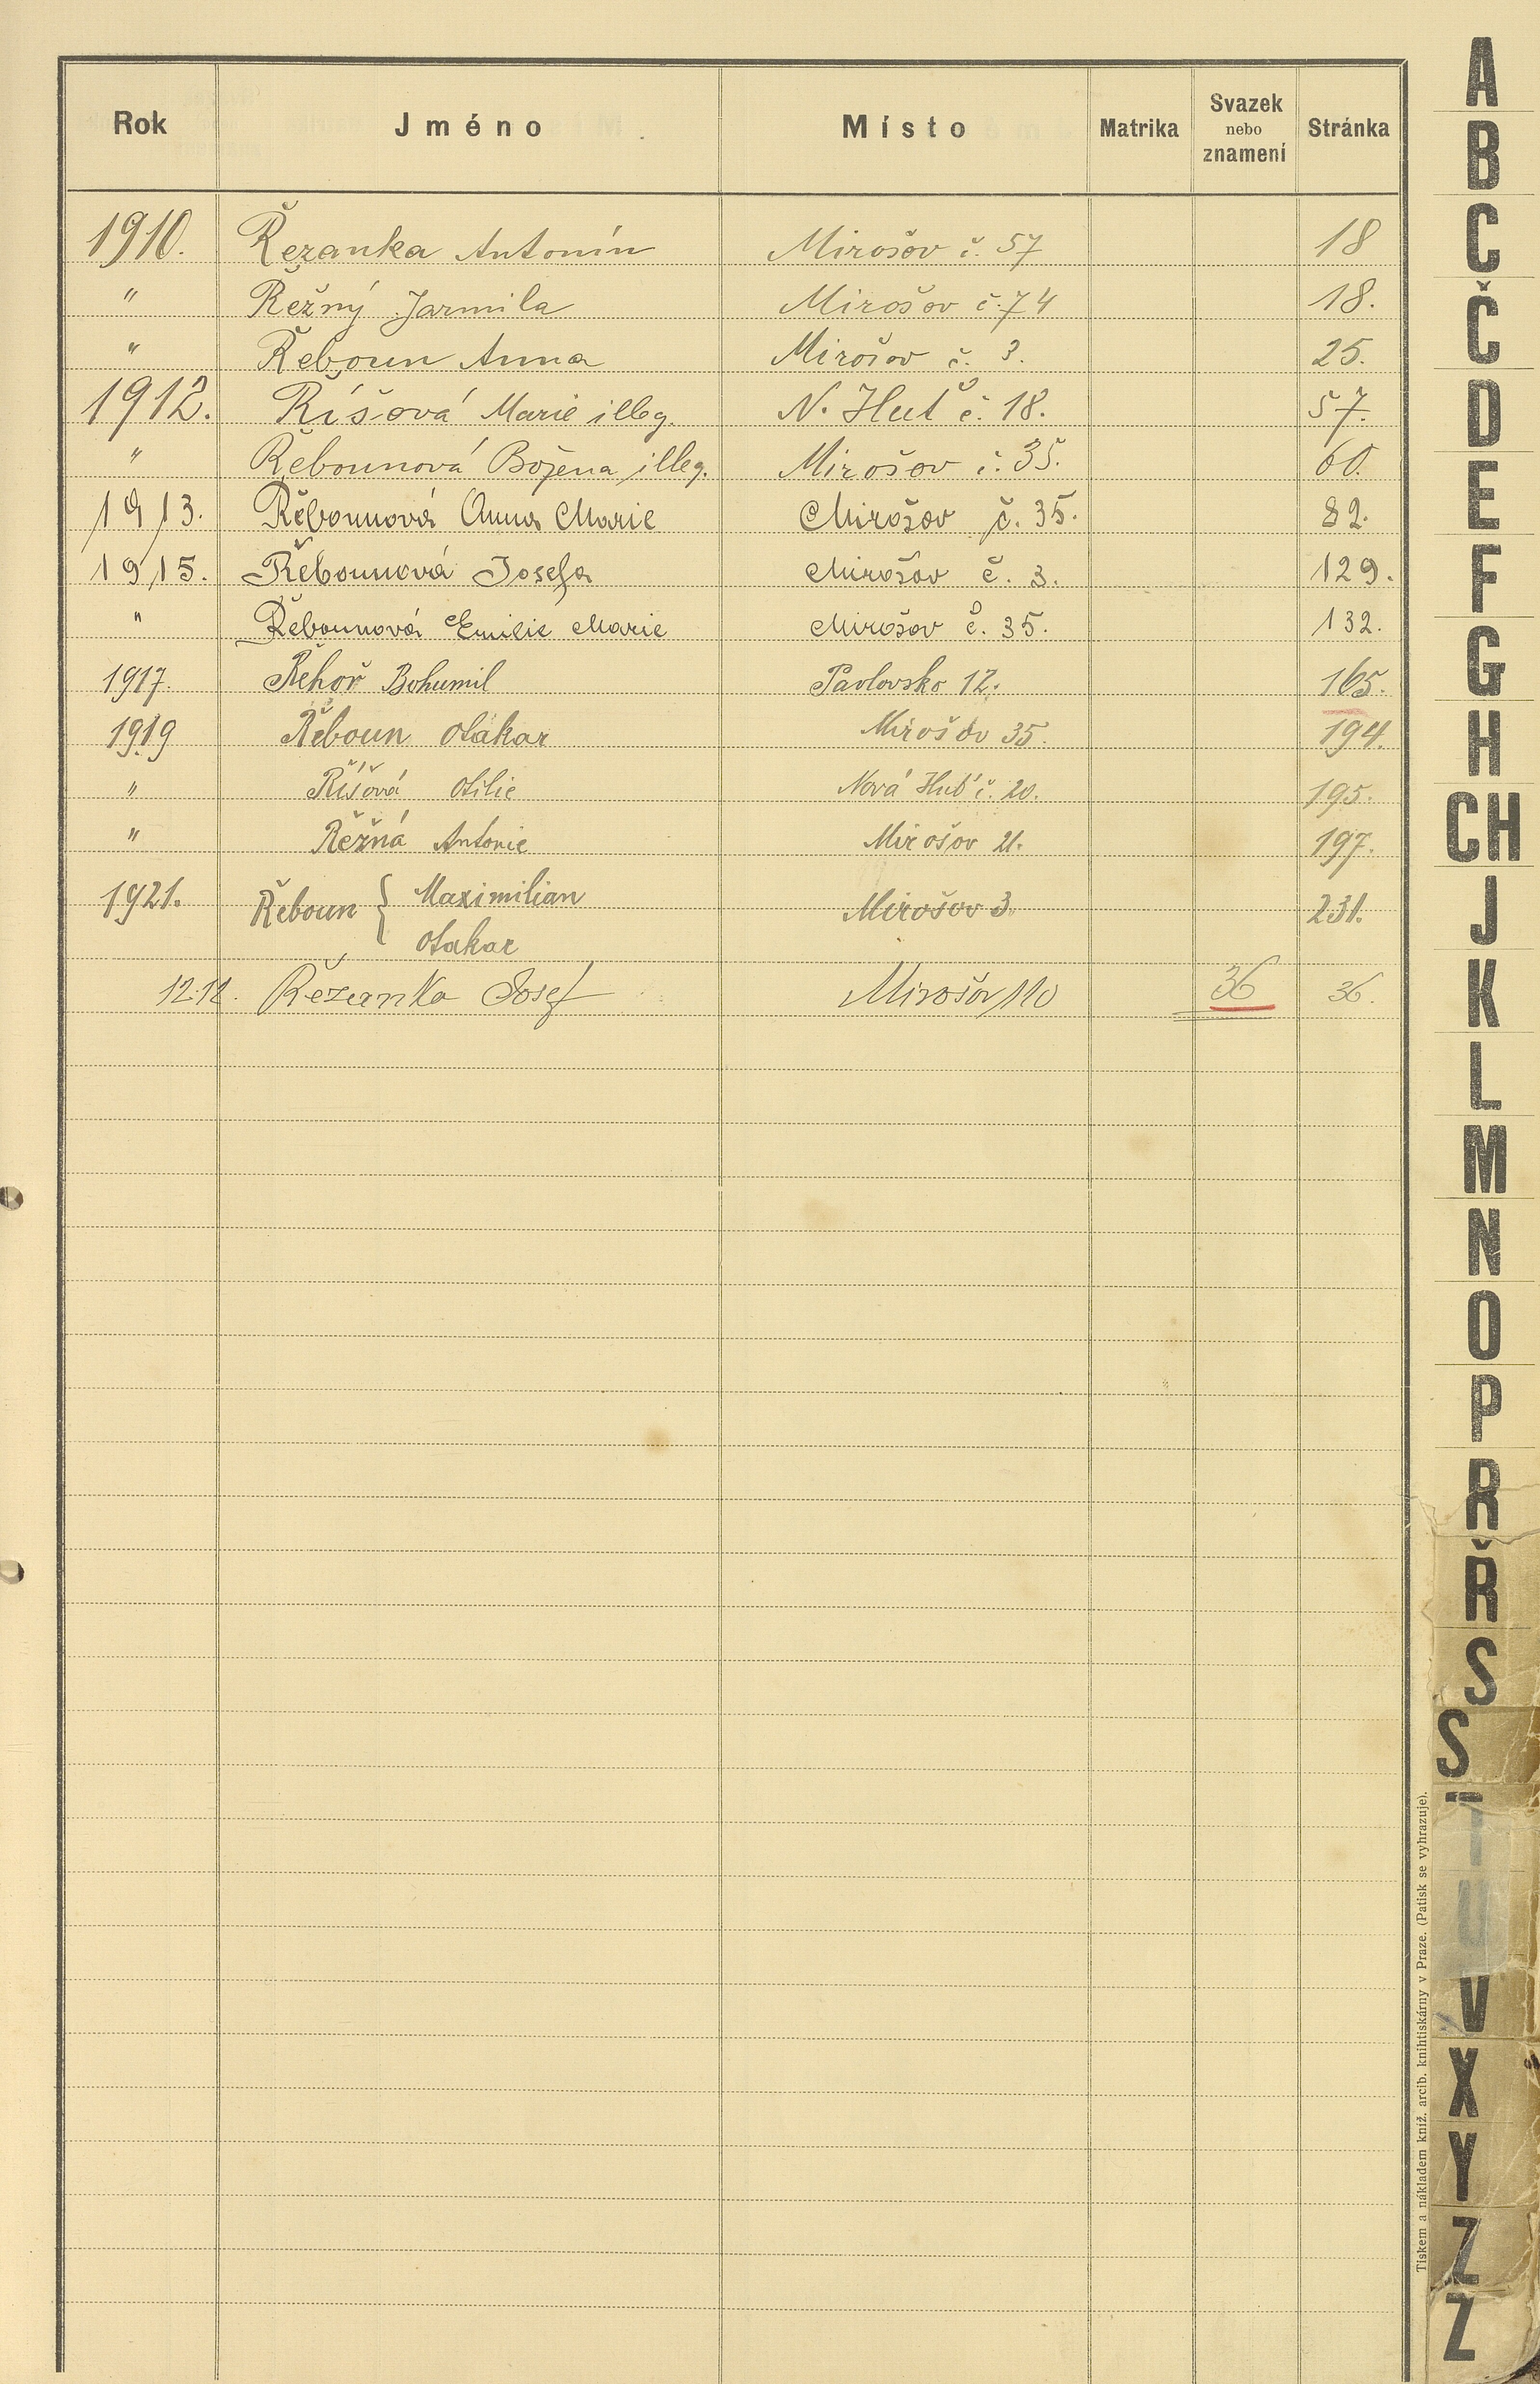 Rok Jméno Místo Matrika Svazek nebo znamení Stránka
1910. Řezanka Antonín Mirošov č. 57 18
" Řežný Jarmila Mirošov č. 74 18.
" Řeboun Anna Mirošov č. 3. 25.
1912. Říšová Marie illeg. N. Huť č. 18. 57.
" Řebounová Božena illeg. Mirošov č. 35. 60.
1913. Řebounová Anna Marie Mirošov č. 35. 82.
1915. Řebounová Josefa Mirošov č. 3. 129.
" Řebounová Emilie Marie Mirošov č. 35. 132.
1917. Řehoř Bohumil Pavlovsko 12. 165.
1919 Řeboun Otakar Mirošov 35. 194.
" Říšová Otilie Nová Huť č. 20. 195.
" Řežná Antonie Mirošov 21. 197.
1921. Řeboun { Maximilian Mirošov 3. 231.
Otakar
Řezanka Josef Mirošov 36 36.
A
B
C
Č
D
E
F
G
H
CH
J
K
L
M
N
O
P
R
Ř
S
S
T
U
V
X
Y
Z
Z
Tiskem a nákladem kníž. arcib. knihtiskárny v Praze. (Patisk se vyhrazuje).